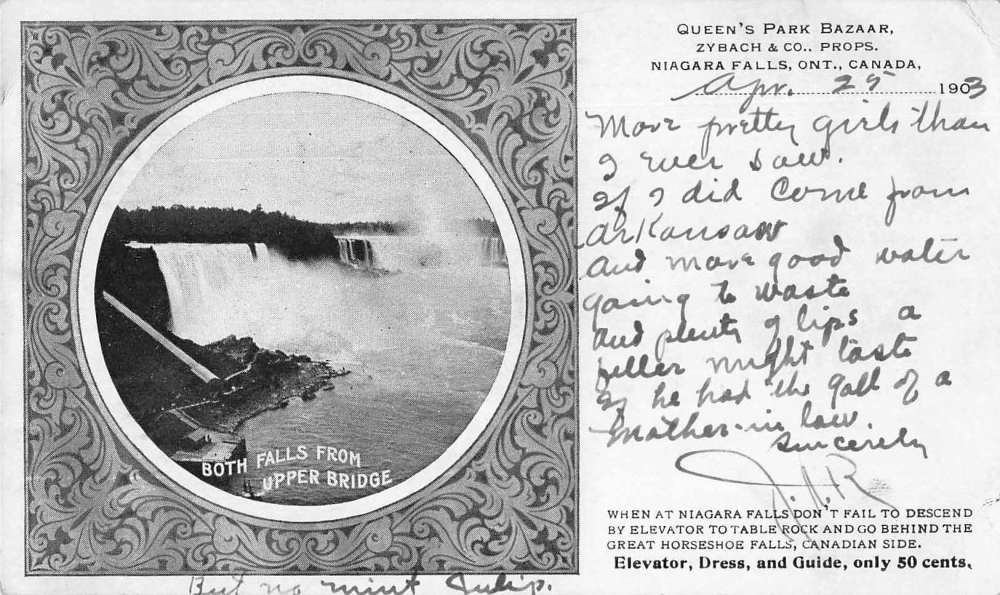 QUEEN'S PARK BAZAAR,
ZYBACH & CO., PROPS.
NIAGARA FALLS, ONT., CANADA,
Apr. 25 1903
More pretty girls than
I ever saw.
If I did Come from
Arkansaw
and more good water
going to waste
and plenty of lips a
feller might taste
If he had the gall of a
Mother-in law.
Sincerely
BOTH FALLS FROM
UPPER BRIDGE
WHEN AT NIAGARA FALLS DON'T FAIL TO DESCEND
BY ELEVATOR TO TABLE ROCK AND GO BEHIND THE
GREAT HORSESHOE FALLS, CANADIAN SIDE.
Elevator, Dress, and Guide, only 50 cents.
But no mint Julip.